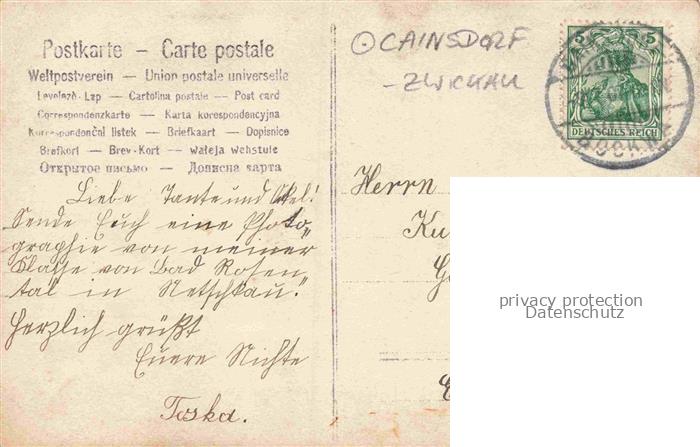 Postkarte – Carte postale
Weltpostverein — Union postale universelle
Levelező-Lap — Cartolina postale — Post card
Correspondenzkarte — Karta korespondencyjna
Korrespondenční listek — Briefkaart — Dopisnice
Brefkort — Brev-Kort —
Открытое письмо — Дописна карта
Liebe Tante und Onkel!
Sende Euch eine Photo„
graphie von meiner
Klasse von Bad Rosen„
tal in Netschkau."
Herzlich grüßt
Euere Nichte
Toska.
CAINSDORF
- ZWICKAU
5 5
DEUTSCHES REICH
Herrn
Ku
privacy protection
Datenschutz